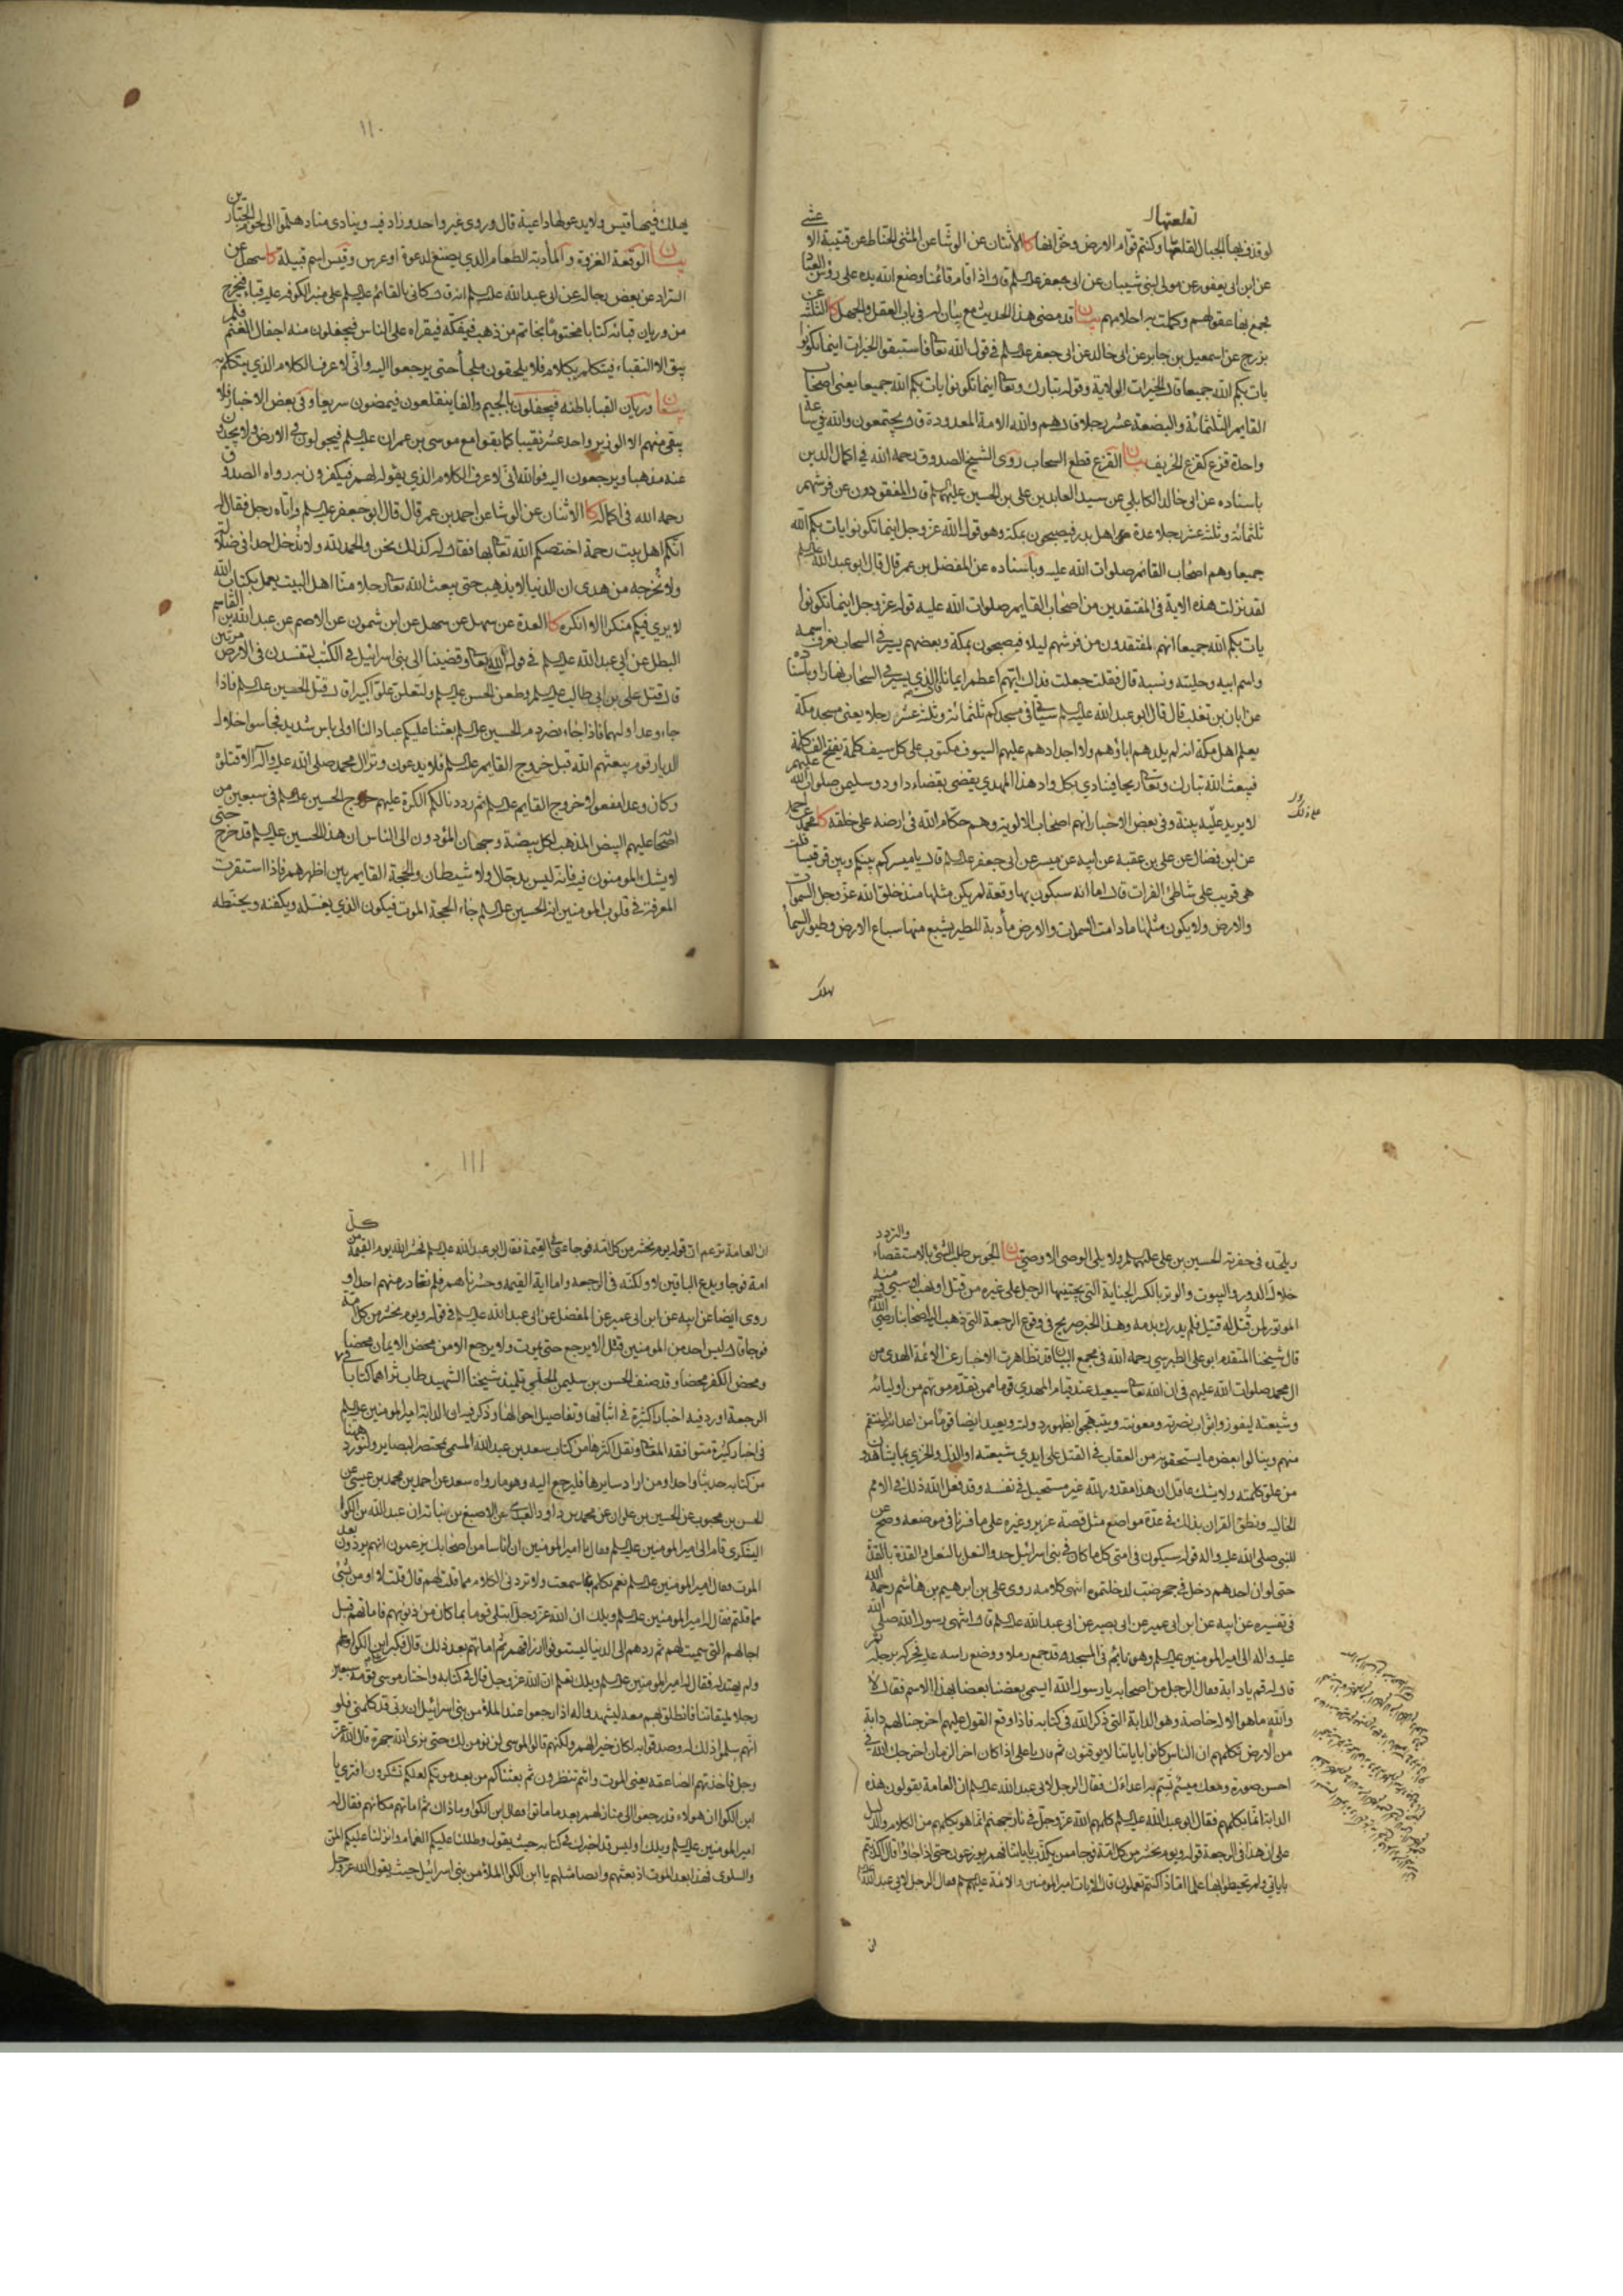 لو قذف بها الجبال لقلعتها وكنتم قوام الارض وخزانها كا الاثنان عن الوشا عن المثنى الحناط عن قتيبة الاعشى
عن ابن ابى يعفور عن مولى لبنى شيبان عن ابى جعفر عليه السلم قال اذا قام قائمنا وضع الله يده على رؤس العباد
فجمع بها عقولهم وكملت به احلامهم بيان قد مضى هذا الحديث مع بيان له فى باب العقل والجهل كا الثلثة عن
بزرج عن اسمعيل بن جابر عن ابى خالد عن ابى جعفر عليه السلم فى قول الله تعالى فاستبقوا الخيرات اينما تكونوا
يات بكم الله جميعا قال الخيرات الولاية وقوله تبارك وتعالى اينما تكونوا يات بكم الله جميعا يعنى اصحاب
القايم الثلثمائة والبضعة عشر رجلا قال هم والله الامة المعدودة قال يجتمعون والله فى ساعة
واحدة قزع كقزع الخريف بيان القزع قطع السحاب روى الشيخ الصدوق رحمه الله فى اكمال الدين
باسناده عن ابى خالد الكابلي عن سيد العابدين على بن الحسين عليهما السلم قال المفقودون عن فرشهم
ثلثمائة وثلثة عشر رجلا عدة اهل بدر فيصبحون بمكة وهو قول الله عز وجل اينما تكونوا يات بكم الله
جميعا وهم اصحاب القائم صلوات الله عليه وباسناده عن المفضل بن عمر قال قال ابو عبد الله عليه السلم
لقد نزلت هذه الاية فى المفتقدين من اصحاب القايم صلوات الله عليه قوله عز وجل اينما تكونوا
يات بكم الله جميعا انهم المفتقدون من فرشهم ليلا فيصبحون بمكة وبعضهم يسير فى السحاب يعرف اسمه
واسم ابيه وحليته ونسبه قال فقلت جعلت فداك ايهم اعظم ايمانا قال الذي يسير فى السحاب نهارا وباسناده
عن ابان بن تغلب قال قال ابو عبد الله عليه السلم سياتى فى مسجدكم ثلثمائة وثلثة عشر رجلا يعنى مسجد مكة
يعلم اهل مكة انه لم يلدهم اباؤهم ولا اجدادهم عليهم السيوف مكتوب على كل سيف كلمة تفتح الف كلمة
فيبعث الله تبارك وتعالى ريحا فينادي بكل واد هذا المهدي يقضى بقضاء داود وسليمن صلوات الله عليهم
لا يريد عليه بينة وفى بعض الاخبار انهم اصحاب الالوية وهم حكام الله فى ارضه على خلقه كا محمد عن احمد
عن ابن فضال عن على بن عقبة عن ابيه عن ميسر عن ابى جعفر عليه السلم قال يا ميسر كم بينكم وبين قرقيسا قلت
هى قريب على شاطئ الفرات قال اما انه سيكون بها وقعة لم يكن مثلها منذ خلق الله عز وجل السموات
والارض ولا يكون مثلها ما دامت السموات والارض مأدبة للطير يشبع منها سباع الارض وطيور السماء
يهلك
١١٠
يهلك فيها قيس ولا يدعو لها داعية قال وروى غير واحد وزاد فيه وينادى مناد هلموا الى لحوم الجبارين
بيان الوقعة الغزوة والمأدبة الطعام الذي يصنع لدعوة او عرس وقيس اسم قبيلة كا سهل عن
السراد عن بعض رجاله عن ابى عبد الله عليه السلم انه قال كانى بالقائم عليه السلم على منبر الكوفه عليه قباء فيخرج
من وريان قبائه كتابا مختوما بخاتم من ذهب فيفكه فيقراه على الناس فيجفلون منه اجفال الغنم فلم
يبق الا النقباء فيتكلم بكلام فلا يلحقون ملجأ حتى يرجعوا اليه وانى لاعرف الكلام الذي يتكلم به
بيان وريان القبا باطنه فيجفلون بالجيم والفا ينقلعون فيمضون سريعا وفى بعض الاخبار فلا
يبقى منهم الا الوزير واحد عشر نقيبا كما بقوا مع موسى بن عمران عليه السلم فيجولون فى الارض ولا يجدون
عنه مذهبا ويرجعون اليه فوالله انى لاعرف الكلام الذي يقوله لهم فيكفرون به رواه الصدوق
رحمه الله فى اكماله كا الاثنان عن الوشا عن احمد بن عمر قال قال ابو جعفر عليه السلم واتاه رجل فقال له
انكم اهل بيت رحمة اختصكم الله تعالى بها فقال له كذلك نحن والحمد لله ولا ندخل احدا فى ضلالة
ولا نخرجه من هدى ان الدنيا لا يذهب حتى يبعث الله تعالى رجلا منا اهل البيت يعمل بكتاب الله
لا يرى فيكم منكرا الا انكره كا العدة عن سهل عن ابن شمون عن الاصم عن عبد الله بن القاسم
البطل عن ابى عبد الله عليه السلم فى قول الله تعالى وقضينا الى بنى اسرائيل فى الكتب لتفسدن فى الارض مرتين
قال قتل على بن ابى طالب عليه السلم وطعن الحسن عليه السلم ولتعلن علوا كبيرا قال قتل الحسين عليه السلم فاذا
جاء وعد اوليهما فاذا جاء نصر دم الحسين عليه السلم بعثنا عليكم عبادا لنا اولى باس شديد فجاسوا خلال
الديار قوم يبعثهم الله قبل خروج القايم عليه السلم فلا يدعون وترا لال محمد صلى الله عليه وآله الا قتلوه
وكان وعدا مفعولا خروج القايم عليه السلم ثم رددنا لكم الكرة عليهم خروج الحسين عليه السلم فى سبعين من
اصحابه عليهم البيض المذهب لكل بيضة وجهان المؤدون الى الناس ان هذا الحسين عليه السلم قد خرج حتى
لا يشك المومنون فيه فانه ليس بدجال ولا شيطان والحجة القايم بين اظهرهم فاذا استقرت
المعرفة فى قلوب المومنين انه الحسين عليه السلم جاء الحجة الموت فيكون الذي يغسله ويكفنه ويحنطه
ويلحده فى حفرته الحسين بن على عليهما السلم ولا يلى الوصى الا الوصى بيان الجوس طلب الشئ بالاستقصاء والتردد
خلال الدور والبيوت والوتر بالكسر الجناية التى يجنيها الرجل على غيره من قتل او نهب او سبى ومنه
الموتور لمن قتل له قتيل فلم يدرك بدمه وهذا الخبر صريح فى وقوع الرجعة التى ذهب اليها اصحابنا رضى الله
قال شيخنا المتقدم ابو على الطبرسى رحمه الله فى مجمع البيان قد تظاهرت الاخبار عن الائمة الهدى من
ال محمد صلوات الله عليهم فى ان الله تعالى سيعيد عند قيام المهدي قوما ممن تقدم موتهم من اوليائه
وشيعته ليفوزوا بثواب نصرته ومعونته ويبتهجوا بظهور دولته ويعيد ايضا قوما من اعدائه لينتقم
منهم وينالوا بعض ما يستحقونه من العقاب فى القتل على ايدي شيعته او الذل والخزي بما يشاهدون
من علو كلمته ولا يشك عاقل ان هذا مقدور لله غير مستحيل فى نفسه وقد فعل الله ذلك فى الامم
الخاليه ونطق القران بذلك فى عدة مواضع مثل قصة عزير وغيره على ما فسرنا فى موضعه وصح عن
النبى صلى الله عليه واله قوله سيكون فى امتى كل ما كان فى بنى اسرائيل حذو النعل بالنعل والقذة بالقذة
حتى لو ان احدهم دخل فى جحر ضب لدخلتموه انتهى كلامه روى على بن ابرهيم بن هاشم رحمه الله
فى تفسيره عن ابيه عن ابن ابى عمير عن ابى بصير عن ابى عبد الله عليه السلم قال انتهى رسول الله صلى الله
عليه واله الى امير المومنين عليه السلم وهو نايم فى المسجد وقد جمع رملا ووضع راسه عليه فحركه برجله ثم
قال له قم يا دابة فقال الرجل من اصحابه يا رسول الله ايسمى بعضنا بعضا بهذا الاسم فقال لا
والله ما هو الا له خاصة وهو الدابة التى ذكر الله فى كتابه فاذا وقع القول عليهم اخرجنا لهم دابة
من الارض تكلمهم ان الناس كانوا باياتنا لا يوقنون ثم قال يا على اذا كان اخر الزمان اخرجك الله فى
احسن صورة ومعك ميسم تسم به اعداءك فقال الرجل لابى عبد الله عليه السلم ان العامة يقولون هذه
الدابة انما تكلمهم فقال ابو عبد الله عليه السلم كلمهم الله عز وجل فى نار جهنم انما هو يكلمهم من الكلام والدليل
على ان هذا فى الرجعة قوله ويوم نحشر من كل امة فوجا ممن يكذب باياتنا فهم يوزعون حتى اذا جاؤا قال اكذبتم
باياتى ولم تحيطوا بها علما اماذا كنتم تعملون قال الايات امير المومنين والائمة عليهم السلم فقال الرجل لابى عبد الله
ان
١١١
ان العامة تزعم ان قوله يوم نحشر من كل امة فوجا عنى فى القيمة فقال ابو عبد الله عليه السلم فيحشر الله يوم القيمة من كل
امة فوجا ويدع الباقين لا ولكنه فى الرجعه واما اية القيمه وحشرناهم فلم نغادر منهم احدا و
روى ايضا عن ابيه عن ابن ابى عمير عن المفضل عن ابى عبد الله عليه السلم فى قوله ويوم نحشر من كل امة
فوجا قال ليس احد من المومنين قتل الا يرجع حتى يموت ولا يرجع الا من محض الايمان محضا
ومحض الكفر محضا وقد صنف الحسن بن سليمن الحلى تلميذ شيخنا الشهيد طاب ثراهما كتابا فى
الرجعة اورد فيه اخبارا كثيرة فى اثباتها وتفاصيل احوالها وذكر فيه ان الدابة امير المومنين عليه السلم
فى اخبار كثيرة متوافقة المعانى ونقل اكثرها من كتاب سعد بن عبد الله المسمى بمختصر البصاير ولنورد ههنا
من كتابه حديثا واحدا ومن اراد سايرها فليرجع اليه وهو ما رواه سعد عن احمد بن محمد بن عيسى عن
الحسن بن محبوب عن الحسين بن علوان عن محمد بن داود العبدى عن الاصبغ بن نباته ان عبد الله بن الكوا
اليشكرى قام الى امير المومنين عليه السلم فقال يا امير المومنين ان اناسا من اصحابك يزعمون انهم يردون بعد
الموت فقال امير المومنين عليه السلم نعم تكلم بما سمعت ولا تزد فى الكلام مما قلت لهم قال قلت لا اومن بشئ
مما قلتم فقال له امير المومنين عليه السلم ويلك ان الله عز وجل ابتلى قوما بما كان من ذنوبهم فاماتهم قبل
اجالهم التى سميت لهم ثم ردهم الى الدنيا ليستوفوا ارزاقهم ثم اماتهم بعد ذلك قال فكبر على ابن الكوا
ولم يهتد له فقال له امير المومنين عليه السلم ويلك تعلم ان الله عز وجل قال فى كتابه واختار موسى قومه سبعين
رجلا لميقاتنا فانطلق بهم معه ليشهدوا له اذا رجعوا عند الملا من بنى اسرائيل ان ربى قد كلمنى فلو
انهم سلموا ذلك له وصدقوا به لكان خيرا لهم ولكنهم قالوا لموسى لن نومن لك حتى نرى الله جهرة قال الله عز
وجل فاخذتهم الصاعقه يعنى الموت وانتم تنظرون ثم بعثناكم من بعد موتكم لعلكم تشكرون افترى يا
ابن الكوا ان هولاء قد رجعوا الى منازلهم بعد ما ماتوا فقال ابن الكوا وما ذاك ثم اماتهم مكانهم فقال له
امير المومنين عليه السلم ويلك اوليس قد اخبرك فى كتابه حيث يقول وظللنا عليكم الغمام وانزلنا عليكم المن
والسلوى فهذا بعد الموت اذ بعثهم وايضا مثلهم يا ابن الكوا الملا من بنى اسرائيل حيث يقول الله عز وجل